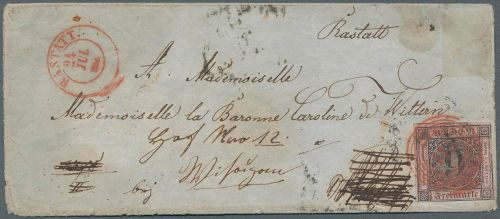 RASTATT.
24
JUL
Rastatt
A Mademoiselle
Mademoiselle la Baronne Caroline de Wittern
Hof Nro 12.
bej
BADEN
9
Freimarke